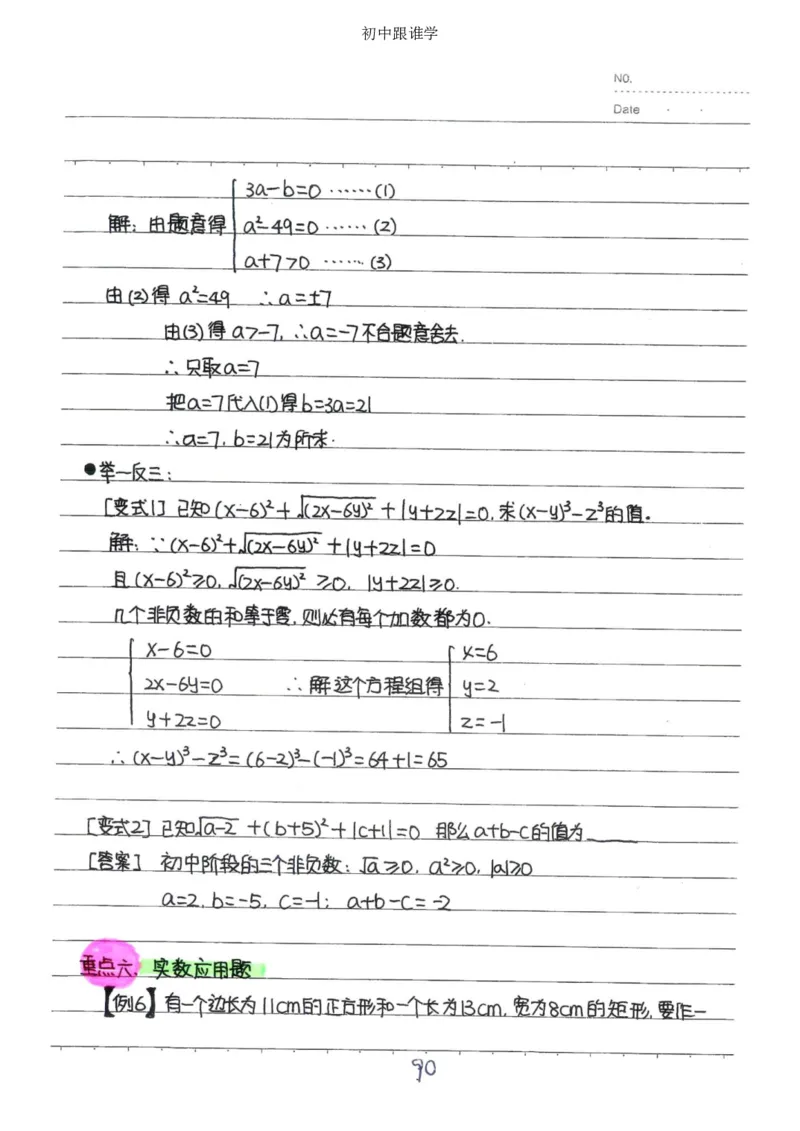 初中跟谁学
NO.
Date
3a-b=0 ……(1)
解：由题意得 a²-49=0 ……(2)
a+7>0 ……(3)
由(2)得 a²=49 ∴a=±7
由(3)得 a>-7, ∴a=-7不合题意舍去.
∴只取a=7
把a=7代入(1)得b=3a=21
∴a=7, b=21为所求.
●举一反三：
[变式1] 已知(x-6)²+√(2x-6y)²+|y+2z|=0, 求(x-y)³-z³的值。
解：∵(x-6)²+√(2x-6y)²+|y+2z|=0
且(x-6)²≥0, √(2x-6y)²≥0, |y+2z|≥0.
几个非负数的和等于零, 则必有每个加数都为0.
x-6=0 x=6
2x-6y=0 ∴解这个方程组得 y=2
y+2z=0 z=-1
∴(x-y)³-z³=(6-2)³-(-1)³=64+1=65
[变式2] 已知√a-2+(b+5)²+|c+1|=0 那么a+b-c的值为______
[答案] 初中阶段的三个非负数：√a≥0, a²≥0, |a|≥0
a=2, b=-5, c=-1; a+b-c=-2
重点六. 实数应用题
【例6】有一个边长为11cm的正方形和一个长为13cm, 宽为8cm的矩形, 要作一
90